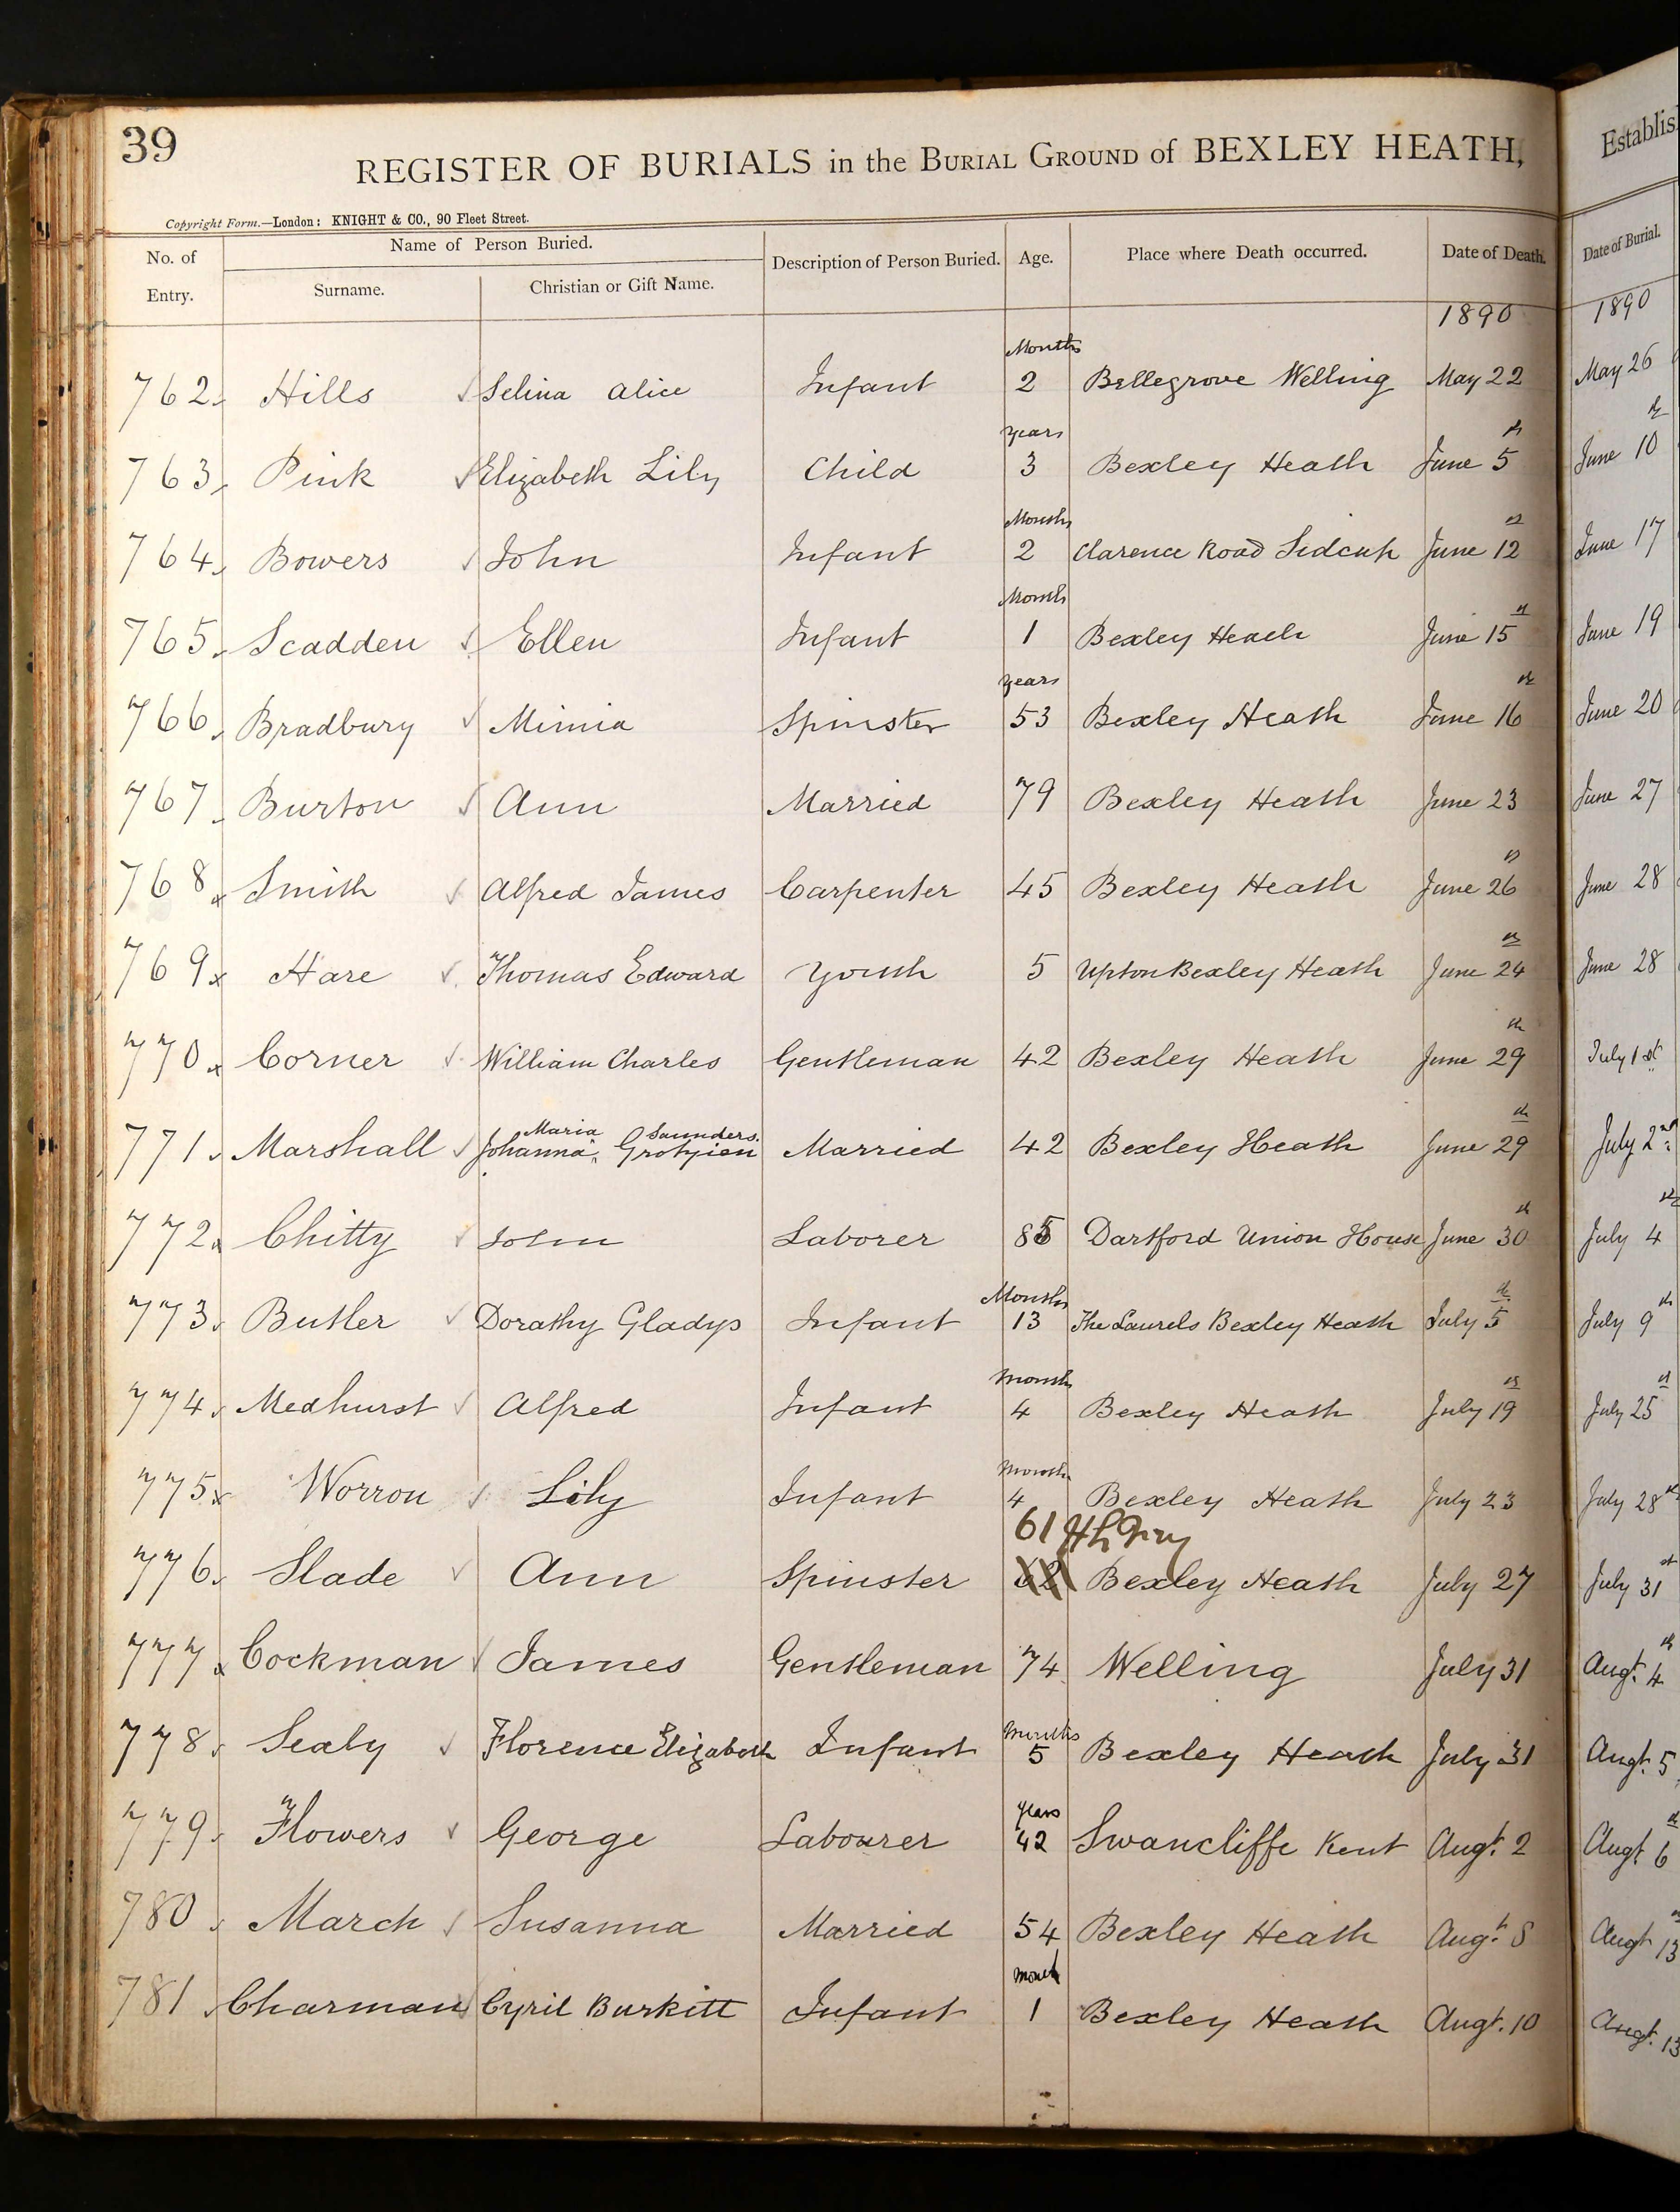 39
REGISTER OF BURIALS in the BURIAL GROUND of BEXLEY HEATH,
Establis
Copyright Form.—London: KNIGHT & CO., 90 Fleet Street.
No. of Entry. Name of Person Buried. Description of Person Buried. Age. Place where Death occurred. Date of Death. Date of Burial.
Surname. Christian or Gift Name.
1890 1890
Months
762 Hills Selina Alice Infant 2 Bellegrove Welling May 22 May 26
years
763 Pink Elizabeth Lily Child 3 Bexley Heath June 5th June 10th
Months
764 Bowers John Infant 2 Clarence Road Sidcup June 12th June 17
Month
765 Scadden Ellen Infant 1 Bexley Heath June 15th June 19
years
766 Bradbury Minnia Spinster 53 Bexley Heath June 16th June 20
767 Burton Ann Married 79 Bexley Heath June 23 June 27
768 Smith Alfred James Carpenter 45 Bexley Heath June 26th June 28
769 Hare Thomas Edward Youth 5 Upton Bexley Heath June 24th June 28
770 Corner William Charles Gentleman 42 Bexley Heath June 29th July 1st
Maria Saunders.
771 Marshall Johanna Married 42 Bexley Heath June 29th July 2nd
772 Chitty John Laborer Dartford Union House June 30th July 4th
Months
773 Butler Dorathy Gladys Infant 13 The Laurels Bexley Heath July 5th July 9th
Months
774 Medhurst Alfred Infant 4 Bexley Heath July 19th July 25th
Months
775 Worrou Lily Infant 4 Bexley Heath July 23 July 28th
61
776 Slade Ann Spinster 62 Bexley Heath July 27 July 31st
777 Cockman James Gentleman 74 Welling July 31 Augt. 4th
Months
778 Sealy Florence Elizabeth Infant 5 Bexley Heath July 31 Augt. 5
years
779 Flowers George Labourer 42 Swancliffe Kent Augt. 2 Augt 6th
780 March Susanna Married 54 Bexley Heath Augt. 8 Augt 13th
Month
781 Charman Cyril Burkitt Infant 1 Bexley Heath Augt. 10 Augt. 13